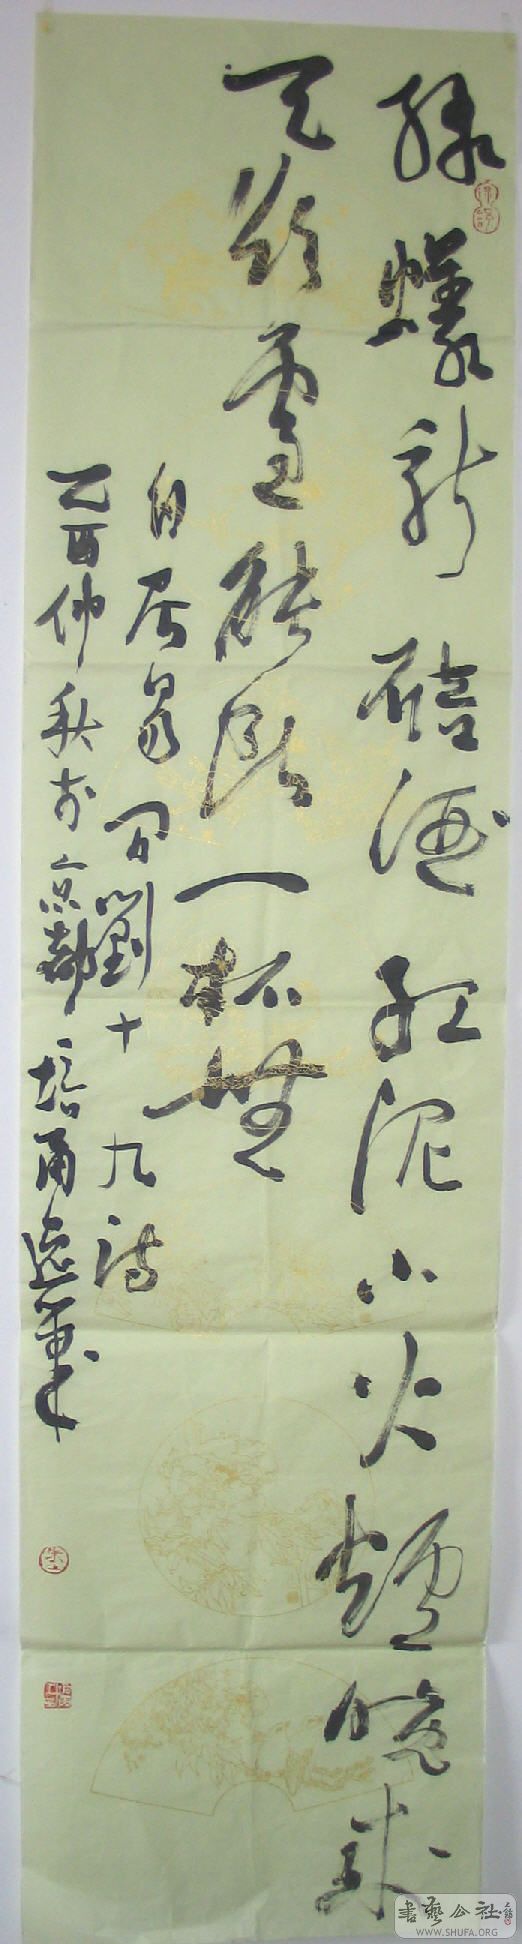 绿蟻新醅酒红泥小火爐晚来
天欲雪能飲一杯無
白居易问劉十九詩
乙酉仲秋於京都培甫遠軍
書藝公社
WWW.SHUFA.ORG